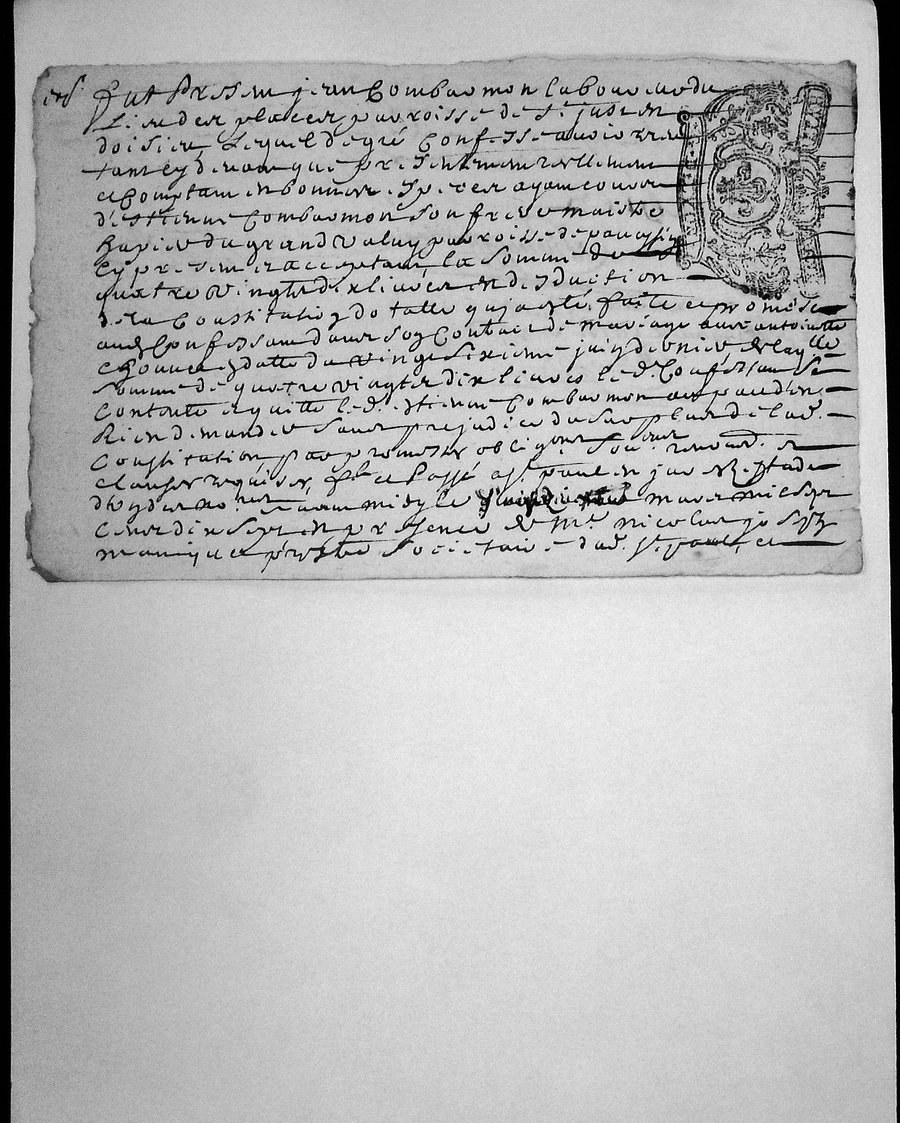 fut present jean Combaremon laboureur du
Lieu des places parroisse de St. judien
doisieu Lequel de gré Confesse avoir receu
tant cy devant que presentement reellement
et Comptant en bonnes especes ayant cours
d'estienne Combaremon son frere maistre
du grand valuy parroisse de
cy present et acceptant la somme de
quatre vingts dix livres en deduction
de la Constitution dotalle qui a esté faitte et promise
aud. Confessant dans son Contract de mariage avec antoinette
en datte du vingt sixieme juin dernier de laqlle
somme de quatre vingts dix livres led. Confessant se
Contente et quitte led. estienne Combaremon au par dens
Rien demander sans prejudice du surplus de lad.
Constitution par promesses obligons soub. renond. et
clauses requises, et Passé a St. paul en jarest
d'huy dernr. avant midy le mars mil sept
Cents dix sept en presence de Mre. nicolas joseph
prestre Societaire dud. St. paul, et